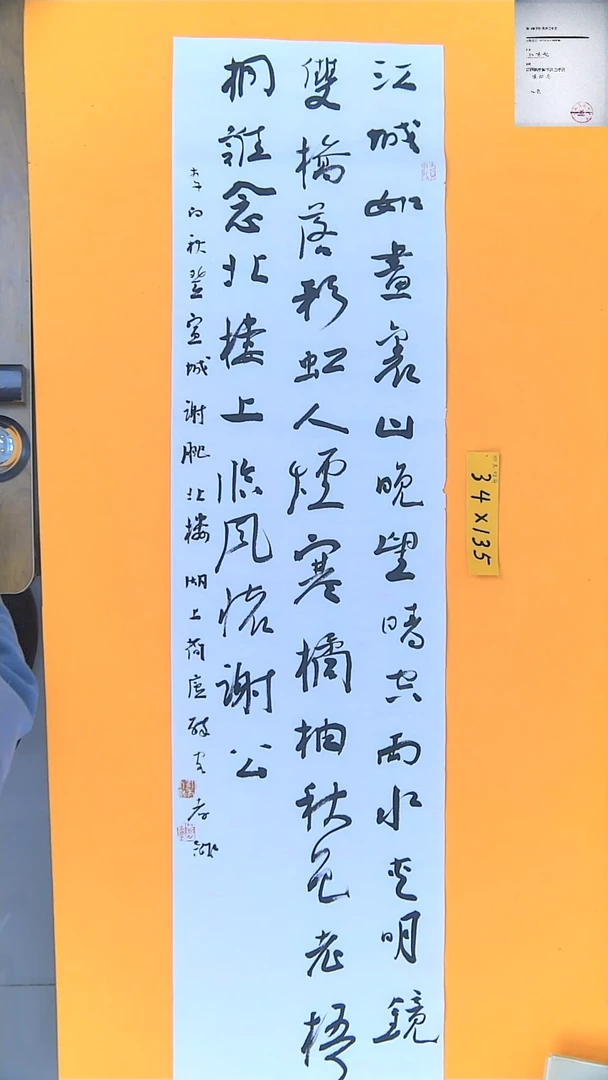 江城如畫裏山晚望晴空兩水夾明鏡
雙橋落彩虹人煙寒橘柚秋色老梧
桐誰念北樓上臨風懷謝公
李白秋登宣城謝朓北楼 湖上荷
34×135